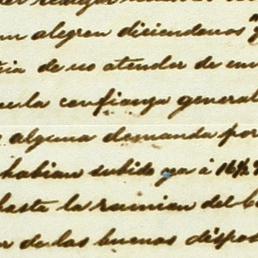 alegren diciendonos
de no atender de
la confianza general
alguna demanda por
habian subido ya á 16½
hasta la reunion del
de las buenas dispos